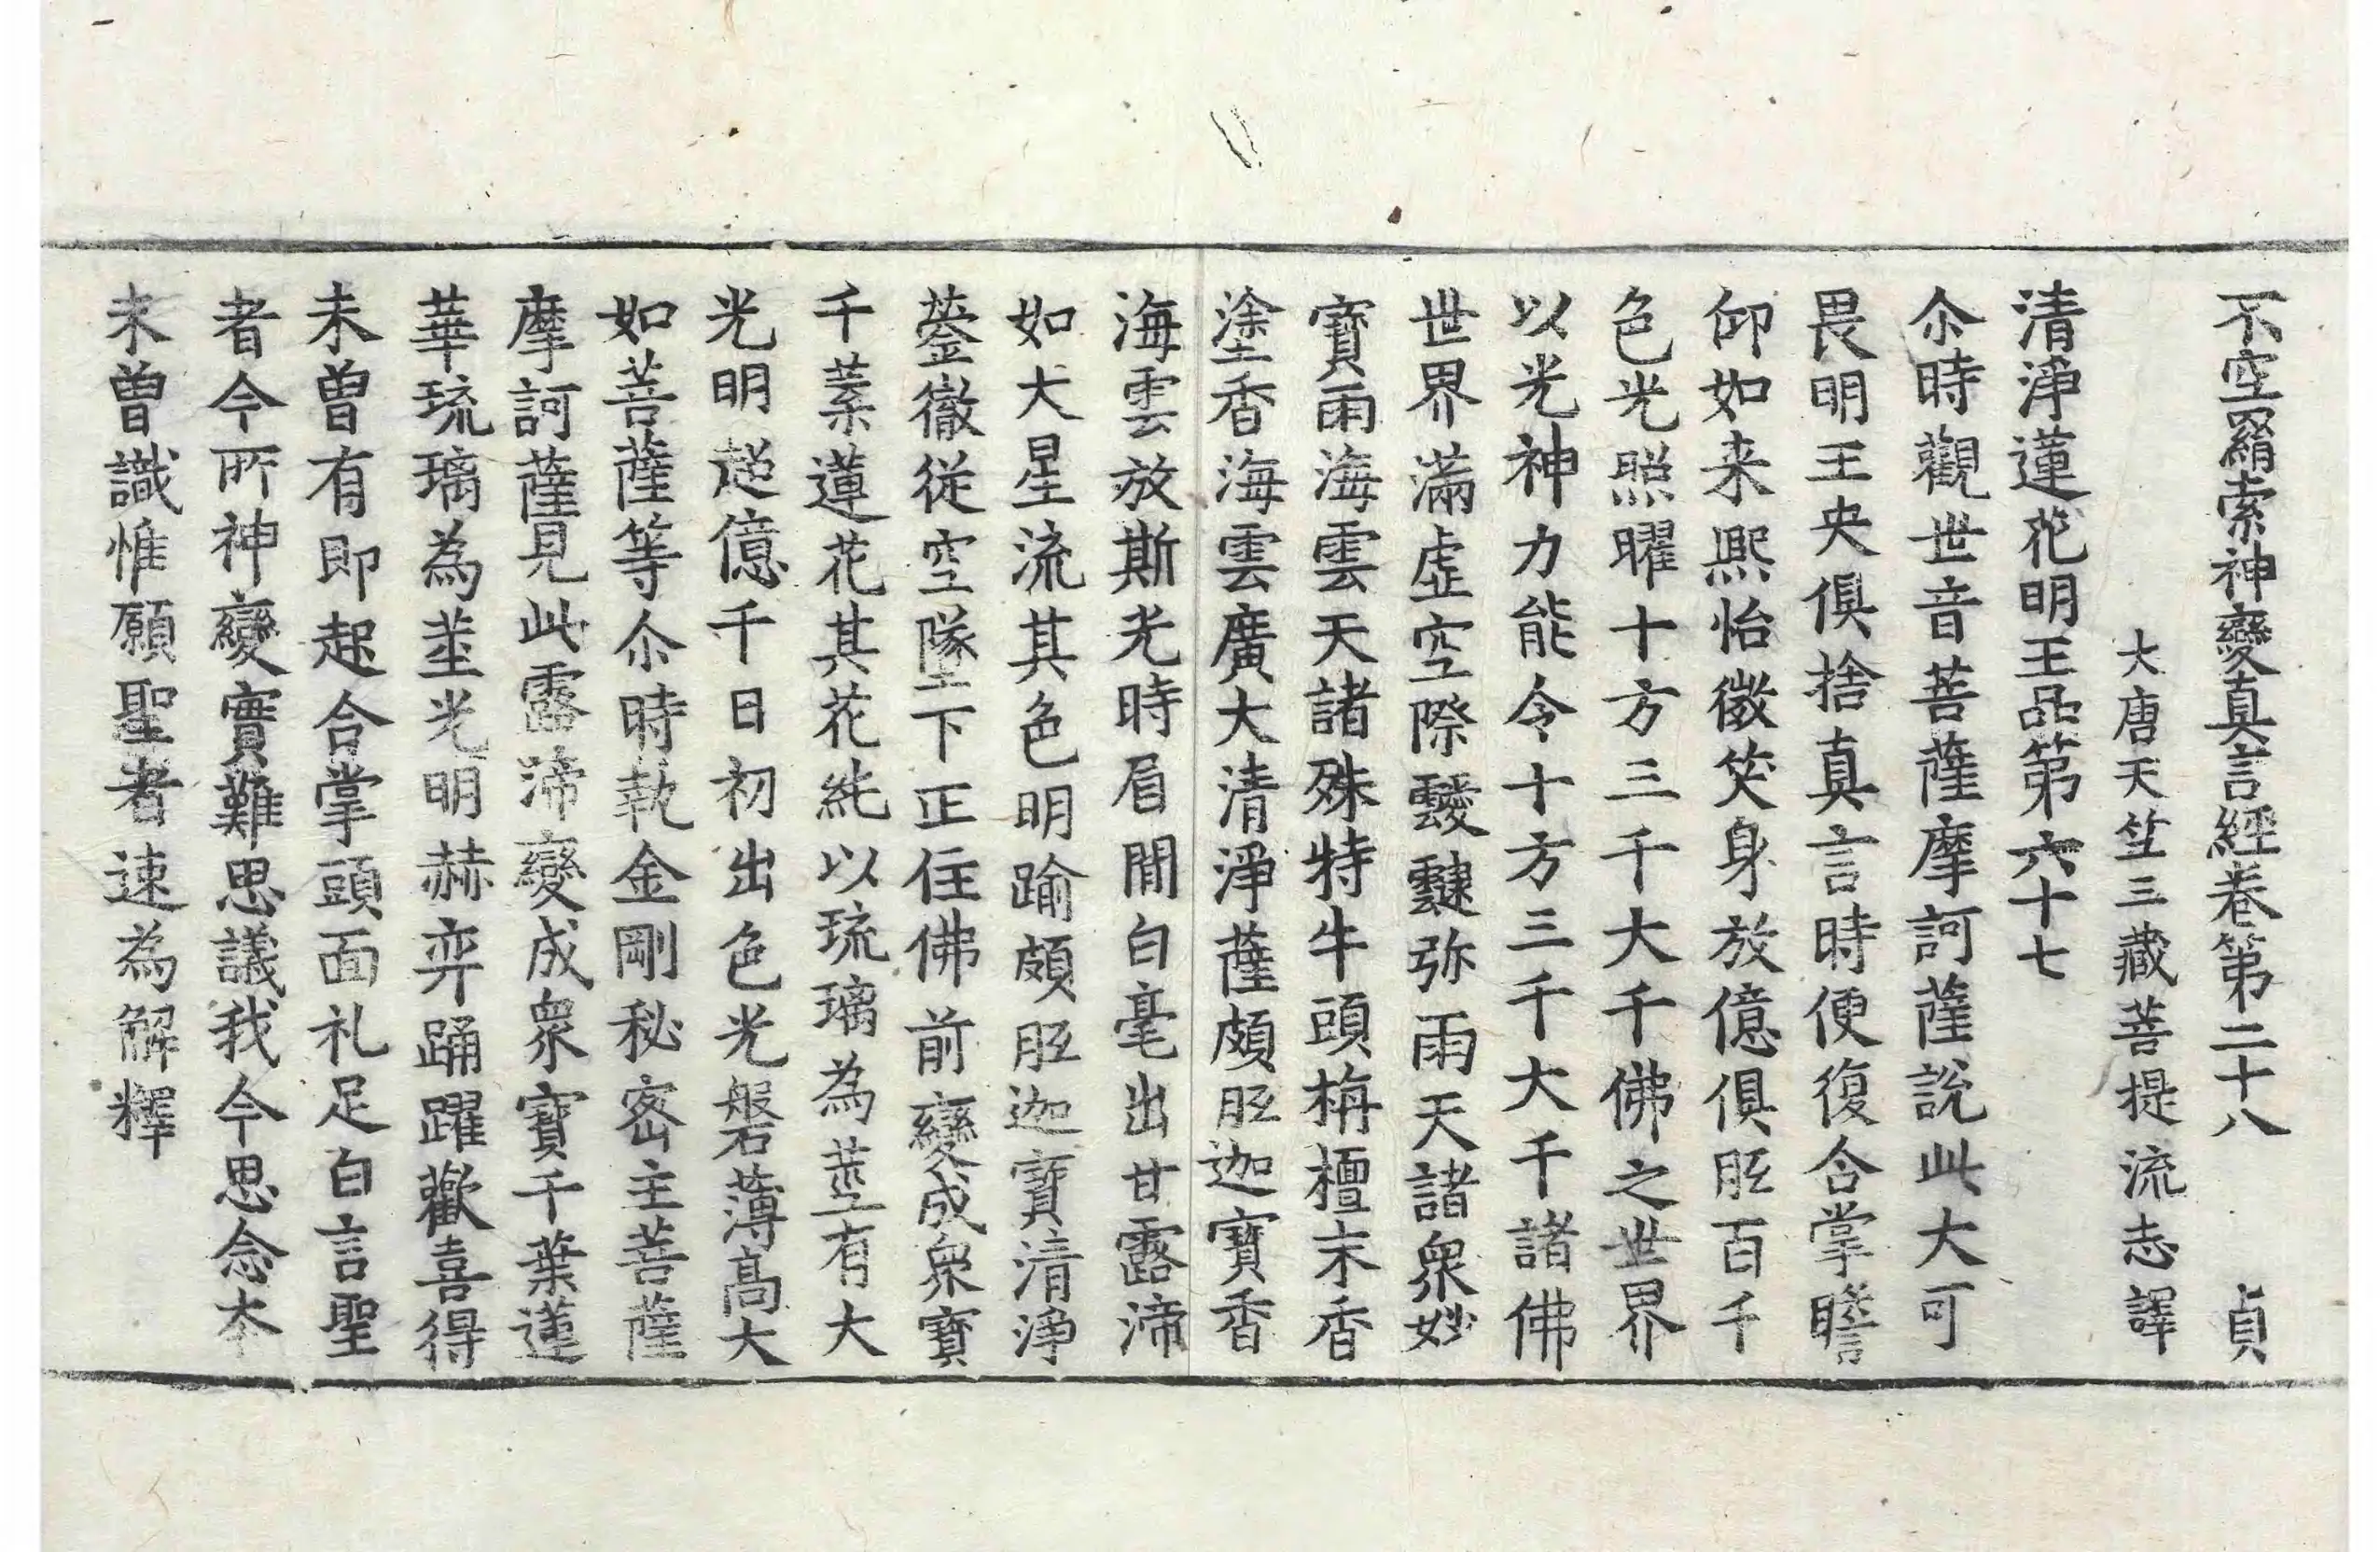 不空羂索神變真言經卷第二十八 貞
大唐天竺三藏菩提流志譯
清淨蓮花明王品第六十七
尒時觀世音菩薩摩訶薩說此大可
畏明王央俱捨真言時便復合掌瞻
仰如来熙怡微笑身放億俱胝百千
色光照曜十方三千大千佛之世界
以光神力能令十方三千大千諸佛
世界滿虛空際靉靆弥雨天諸衆妙
寶雨海雲天諸殊特牛頭栴檀末香
塗香海雲廣大清淨薩頗胝迦寶香
海雲放斯光時眉間白毫出甘露渧
如大星流其色明踰頗胝迦寶清淨
鎣徹從空墜下正住佛前變成衆寶
千葉蓮花其花純以琉璃為莖有大
光明超億千日初出色光磐薄高大
如菩薩等尒時執金剛秘密主菩薩
摩訶薩見此露渧變成衆寶千葉蓮
華琉璃為莖光明赫弈踊躍歡喜得
未曾有即起合掌頭面礼足白言聖
者今所神變實難思議我今思念本
未曾識惟願聖者速為解釋